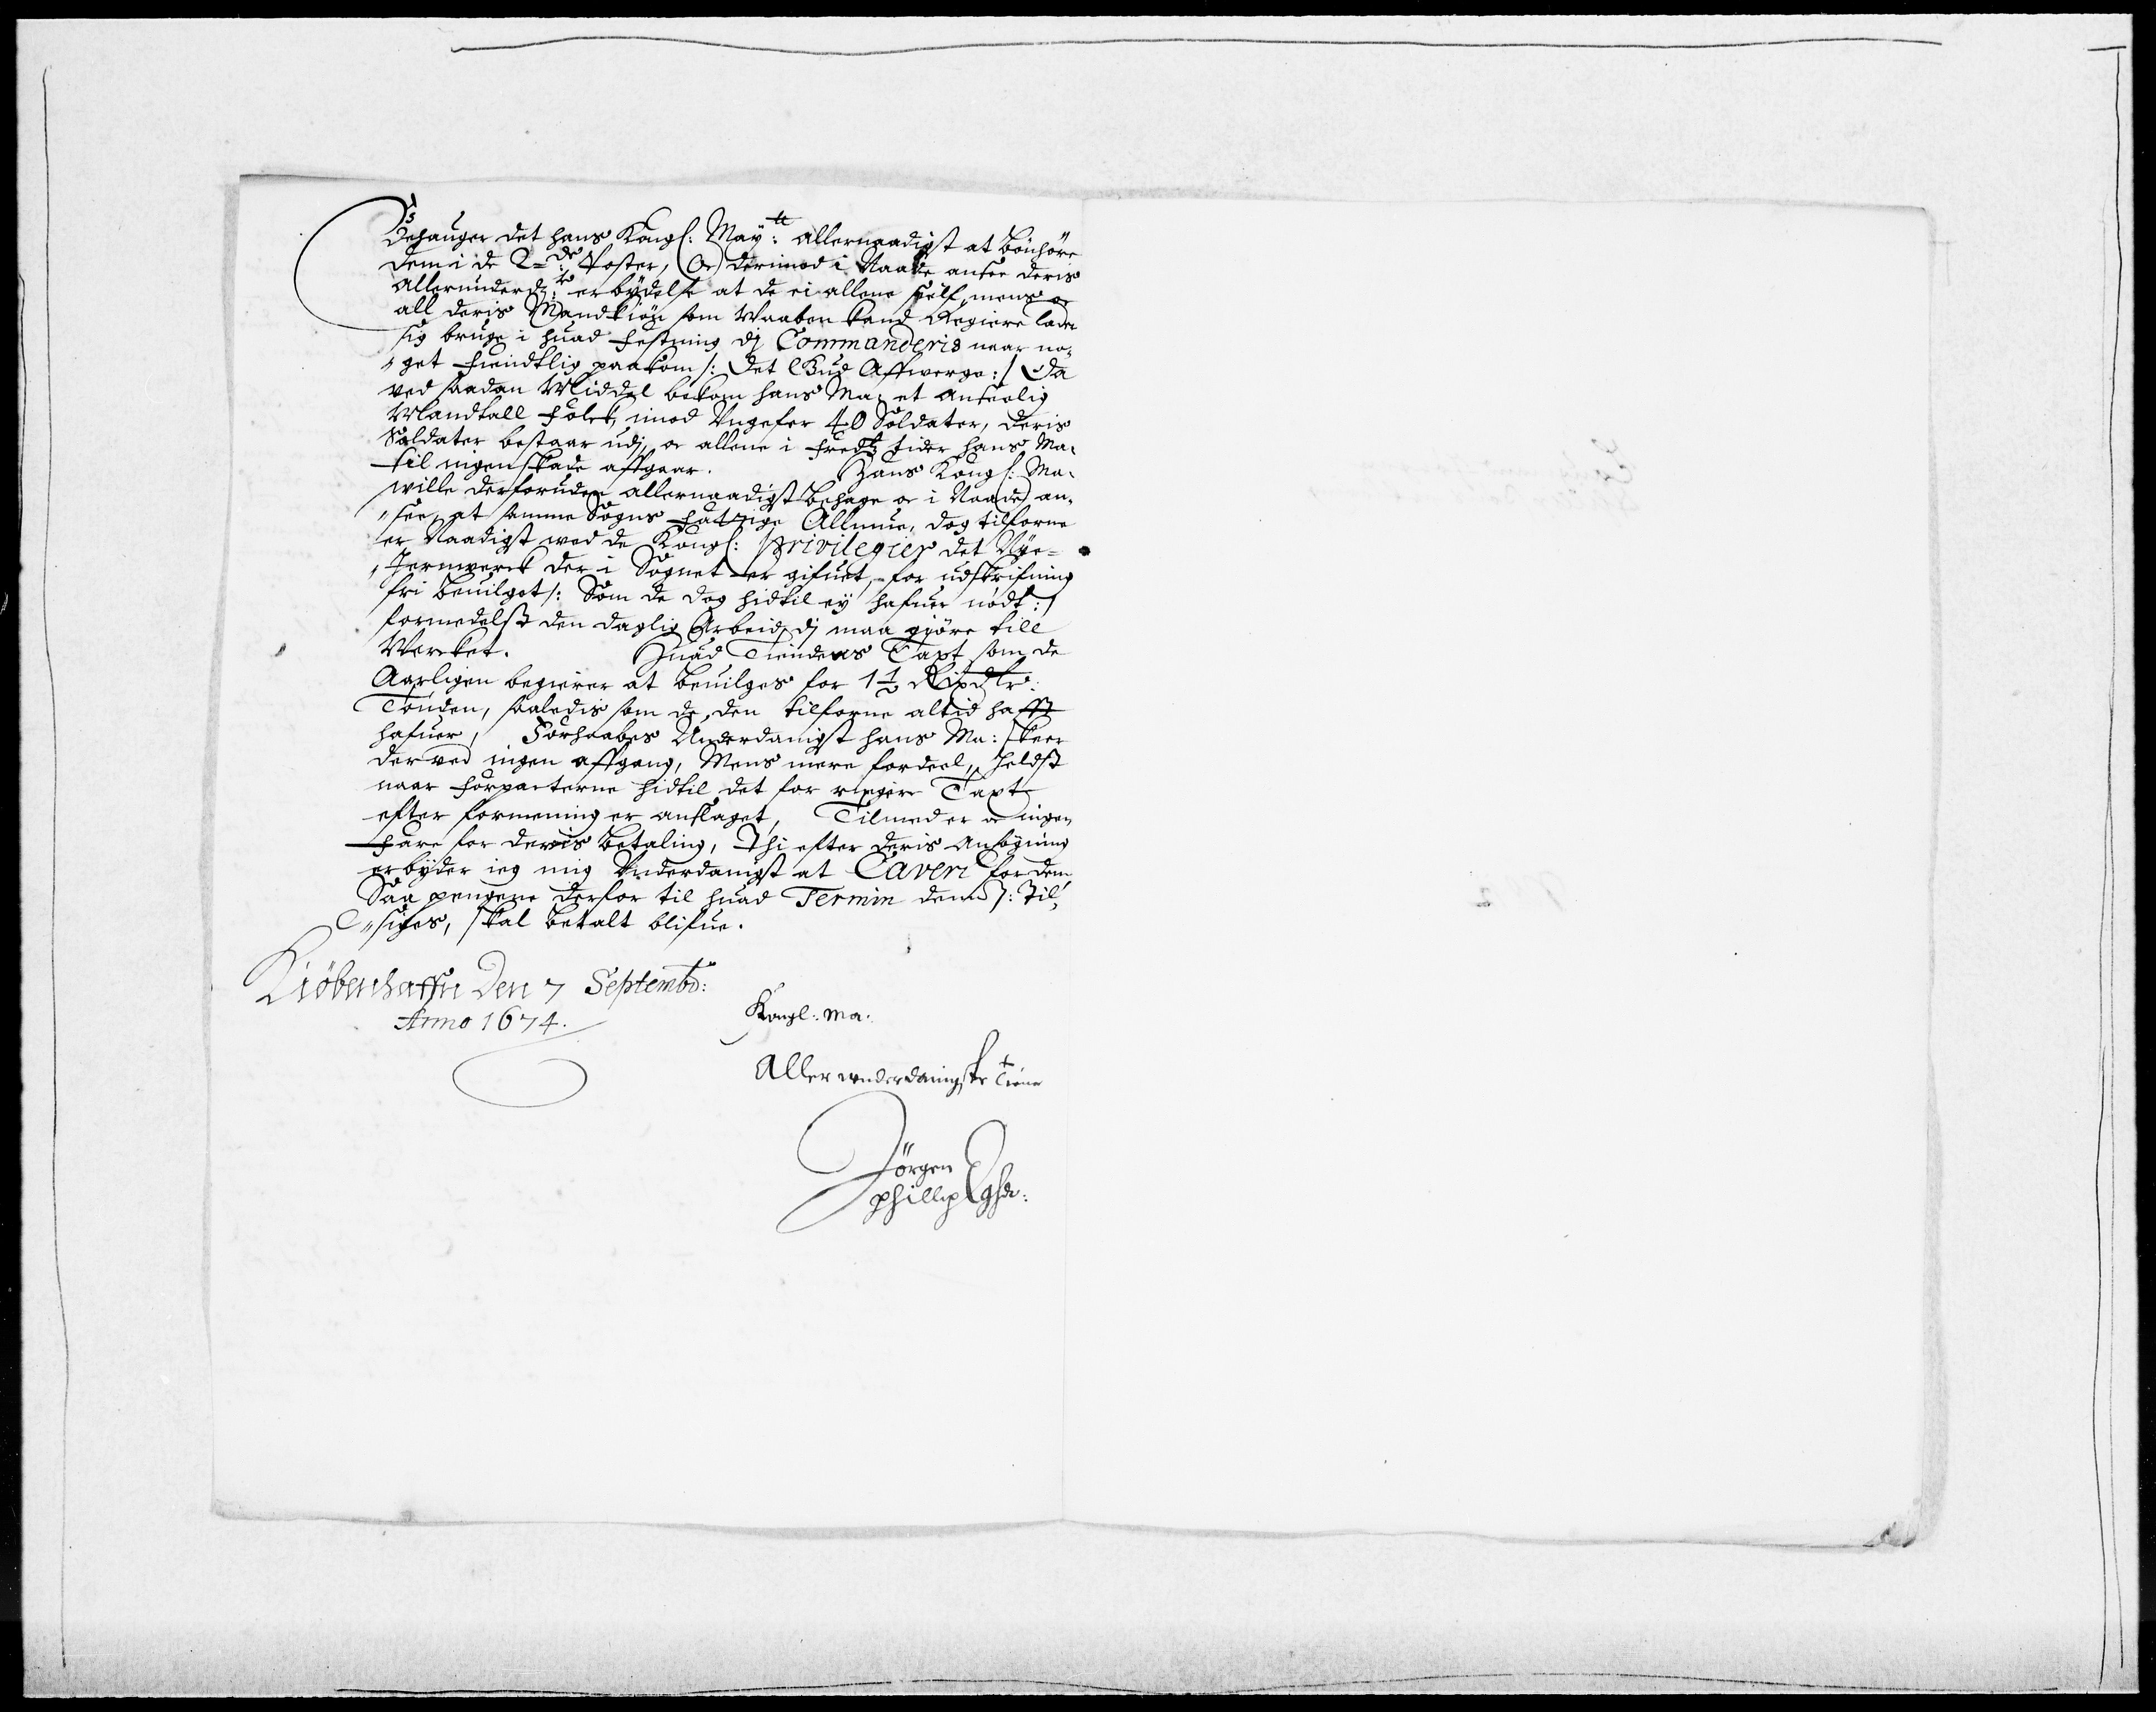 Behauger det hans Kongl: May:tt allernaadigst at bönhöre
dem i de 2=de: Poster, Oc derimod i Naade ansee deris
allerunderd:te erbydelse at de ei allene self, mens oc
all deris Mandkiön som Waaben kand Regiere lade
sig bruge i huad Festning dj Commanderis naar no„
„get fiendtlig paakom /: det Gud Affwerge :/ Da
ved saadan Middel bekom hans Ma: et anseelig
Mandtall Folck, imod Ungefer 40 Soldater, deris
Soldater bestaar udj, oc allene i Freds tider hans Ma:
til ingen skade affgaar. Hans Kongl: Ma:
wille desforuden allernaadigst behage oc i Naade an„
„see, at samme Sogns fattige Allmue, dog tilforne
er Naadigst wed de Kongl: Privilegier det Nye=
„Jernwerck der i Sognet er gifuet, for udskrifning
fri beuilget /: Som de dog hidtil ey hafuer nödt :/
formedelst den daglig Arbeid dj maa giöre till
Wercket. Huad Tiendens Taxt som de
Aarligen begierer at beuilges for 1½ Rixdlr:
Tönden, saaledis som de, den tilforne altid hafft
hafuer, Forhaabes Underdanigst hans Ma: skeer
derved ingen affgang, Mens mere fordeel, heldst
naar Forpacterne hidtil det for ringere Taxt
efter formening er anslaget, Tilmed er oc ingen
Fare for deris betaling, Thi efter deris ansögning
erbyder ieg mig Underdanigst at Cavere for dem
Saa pengene derfor til huad Termin dennd: Til„
„siges, skal betalt blifue.
Kiöbenhaffn Den 7 Septembr:
Anno 1674.
Kongl: Ma:
Allerunderdanigste Tiener
Jörgen
phillip